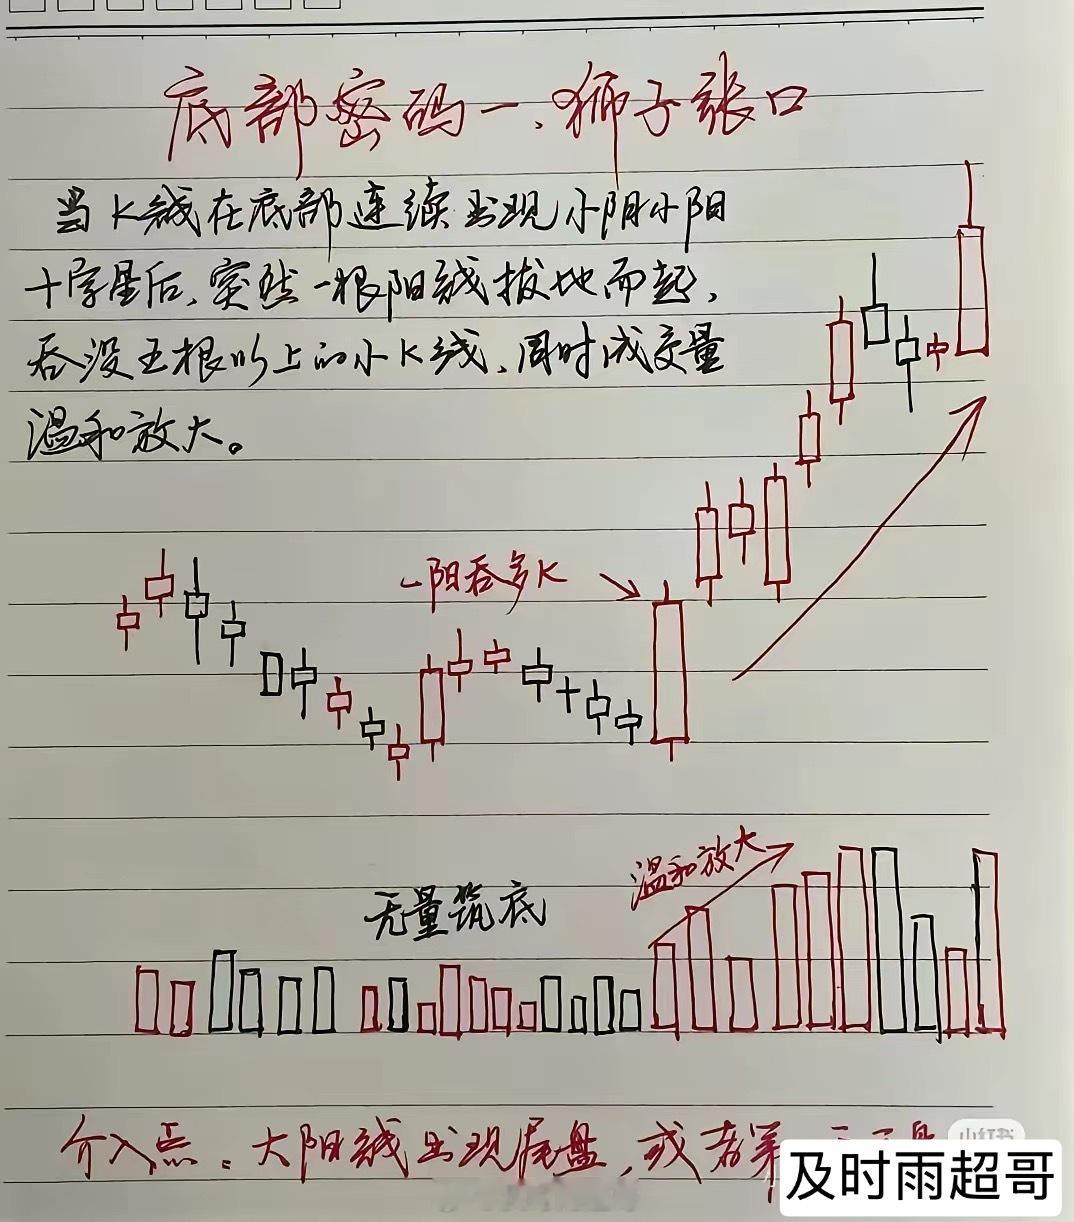 底部密码一、狮子张口
当K线在底部连续出现小阴小阳
十字星后、突然一根阳线拔地而起,
吞没五根以上的小K线、同时成交量
温和放大。
一阳吞多K
温和放大
无量筑底
介入点：大阳线出现尾盘,或者第
小红书
及时雨超哥